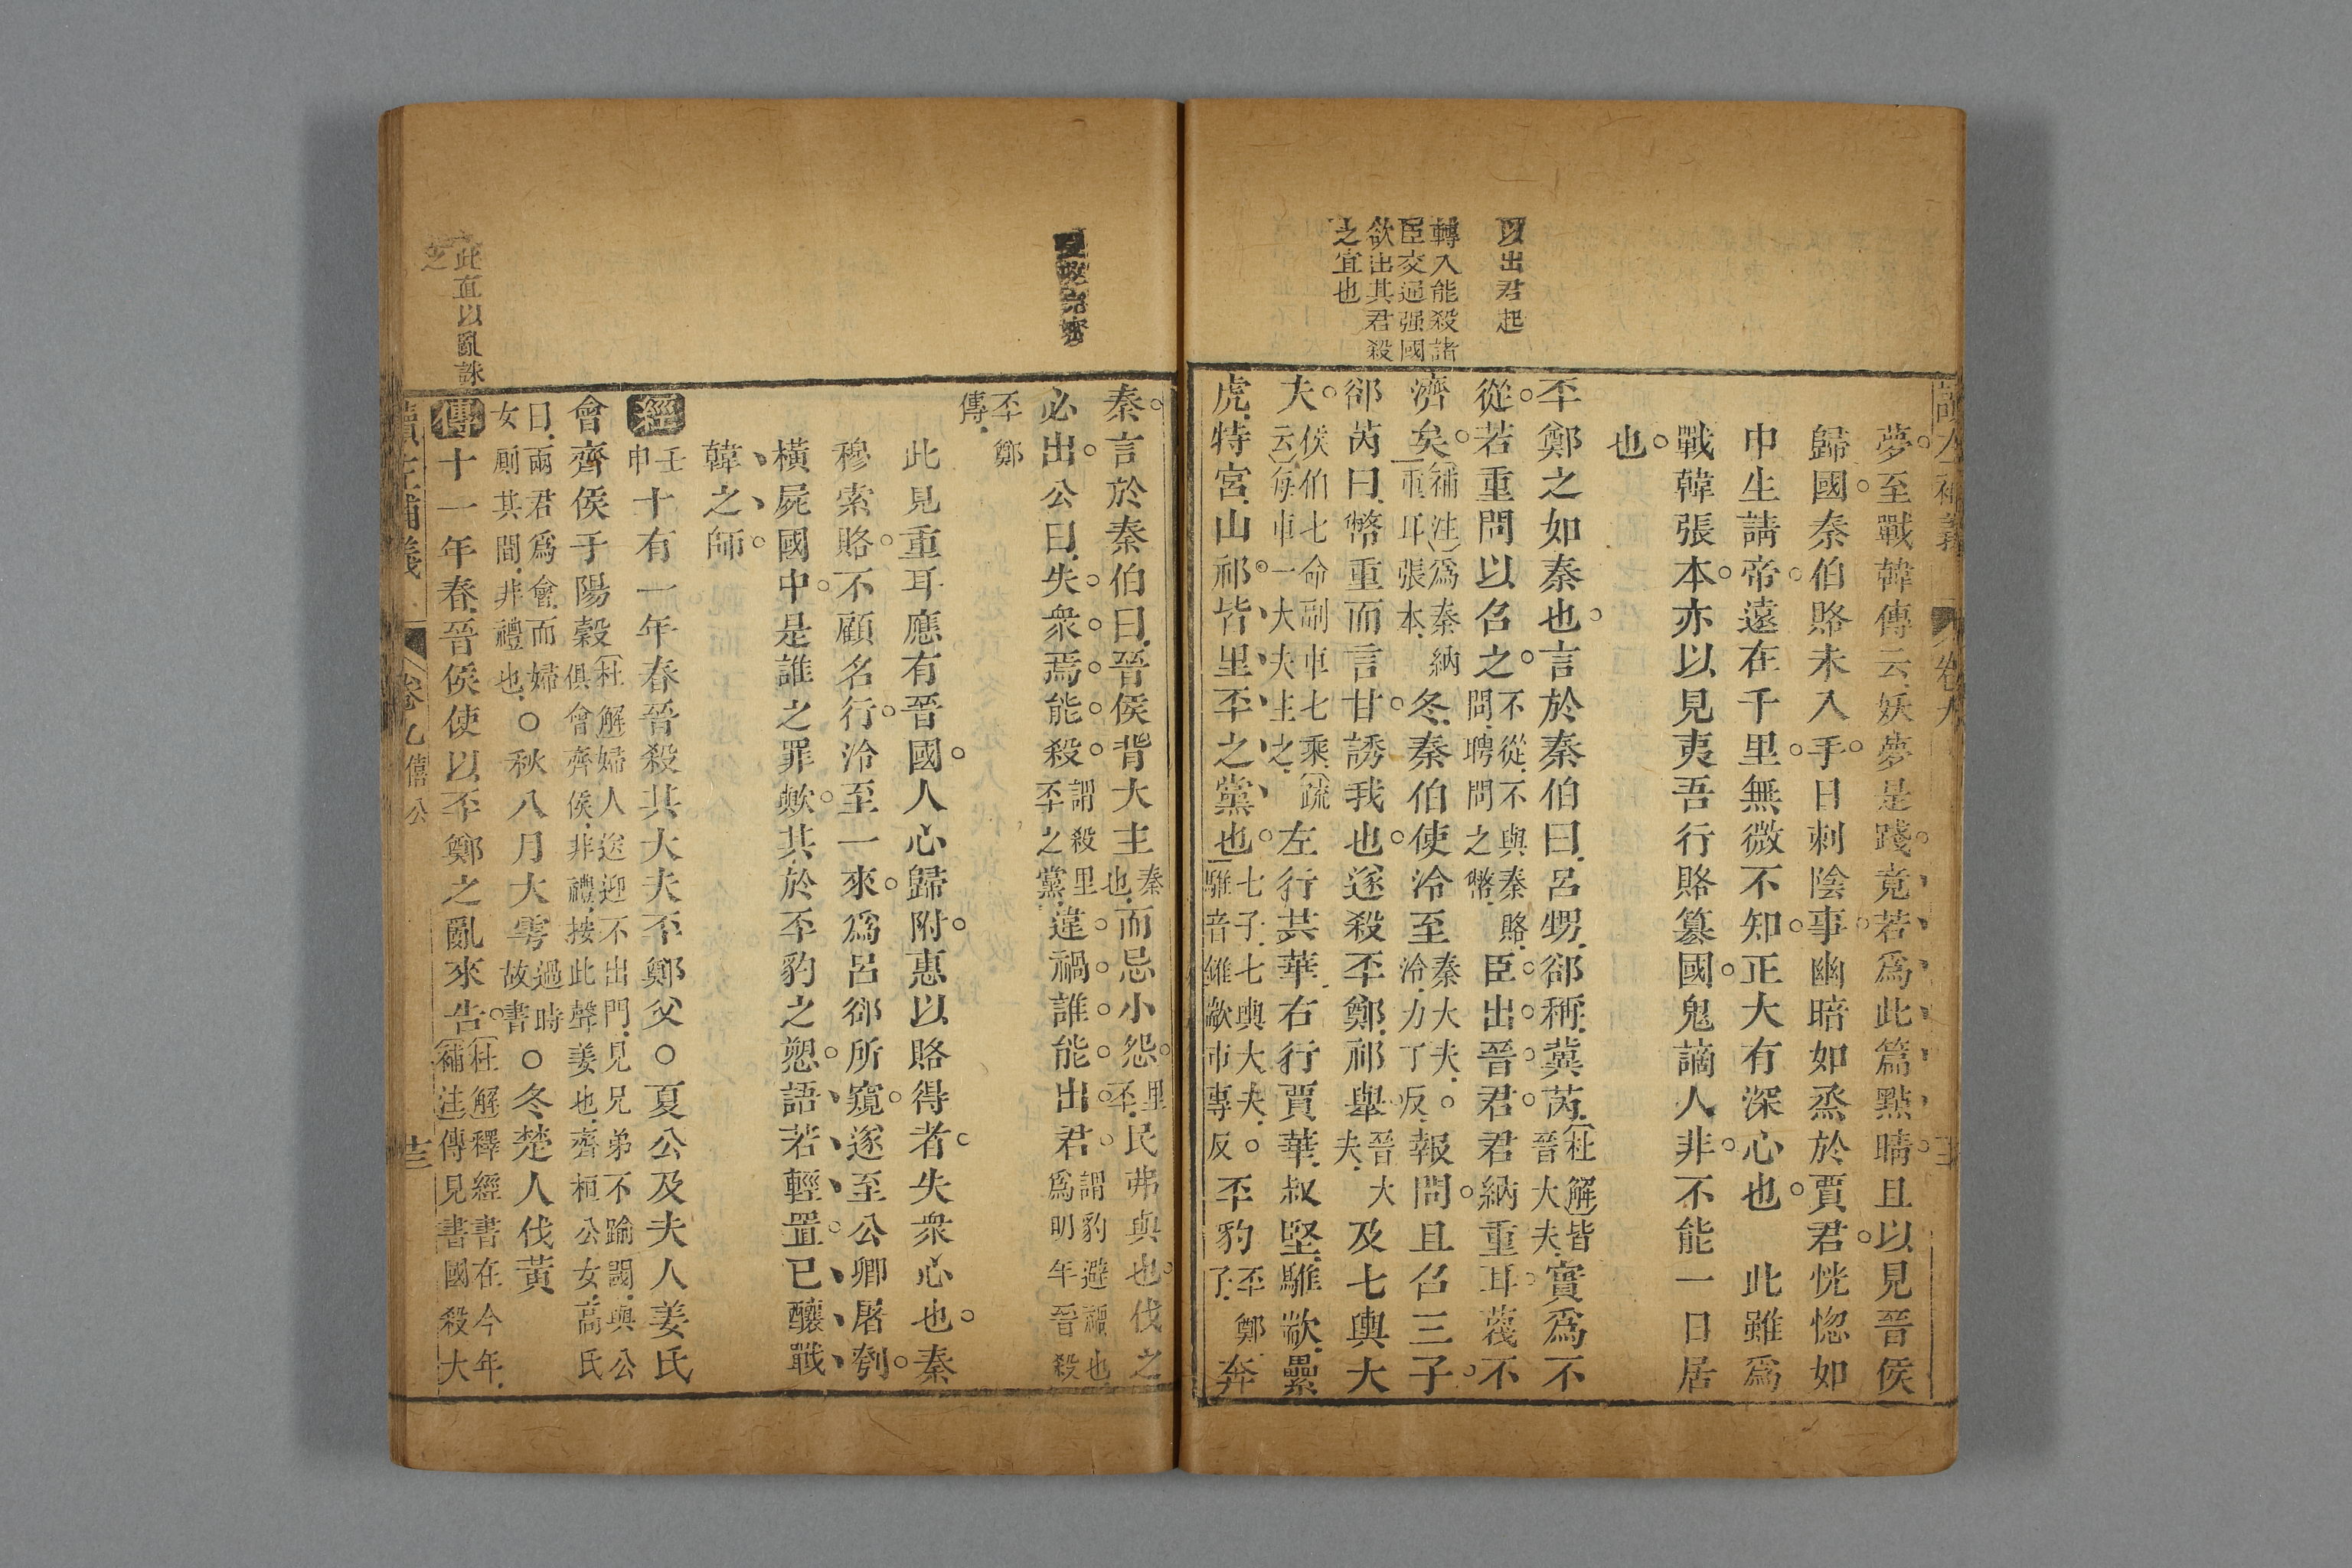 以出君起
轉入能殺諸
臣交通强國
欲出其君殺
之宜也
夢至戰韓傳云妖夢是踐竟若爲此篇點晴且以見晉侯
歸國秦伯賂未入手日刺陰事幽暗如烝於賈君恍惚如
申生請帝遠在千里無微不知正大有深心也 此雖爲
戰韓張本亦以見夷吾行賂篡國鬼謫人非不能一日居
也
丕鄭之如秦也言於秦伯曰呂甥郤稱冀芮杜解皆晉大夫實爲不
從若重問以召之不從不與秦賂問聘問之幣臣出晉君君納重耳蔑不
濟矣補注爲秦納重耳張本冬秦伯使泠至秦大夫泠力丁反報問且召三子
郤芮曰幣重而言甘誘我也遂殺丕鄭祁舉晉大夫及七輿大
夫侯伯七命副車七乘疏云每車一大夫主之左行共華右行賈華叔堅騅歂纍
虎特宮山祁皆里丕之黨也七子七輿大夫騅音維歂市專反丕豹丕鄭子奔
秦言於秦伯曰晉侯背大主秦也而忌小怨里丕民弗與也伐之
必出公曰失衆焉能殺謂殺里丕之黨違禍誰能出君謂豹避禍也爲明年晉殺
丕鄭傳
此見重耳應有晉國人心歸附惠以賂得者失衆心也秦
穆索賂不顧名行泠至一來爲呂郤所窺遂至公卿屠刳
橫屍國中是誰之罪歟其於丕豹之愬語若輕置已釀戰
韓之師
經壬申十有一年春晉殺其大夫丕鄭父○夏公及夫人姜氏
會齊侯于陽穀杜解婦人送迎不出門見兄弟不踰閾與公俱會齊侯非禮按此聲姜也齊桓公女高氏
曰兩君爲會而婦女厠其間非禮也○秋八月大雩過時故書○冬楚人伐黃
傳十一年春晉侯使以丕鄭之亂來告杜解釋經書在今年補注傳見書國殺大
此直以亂誅
之
讀左補義
卷九僖公